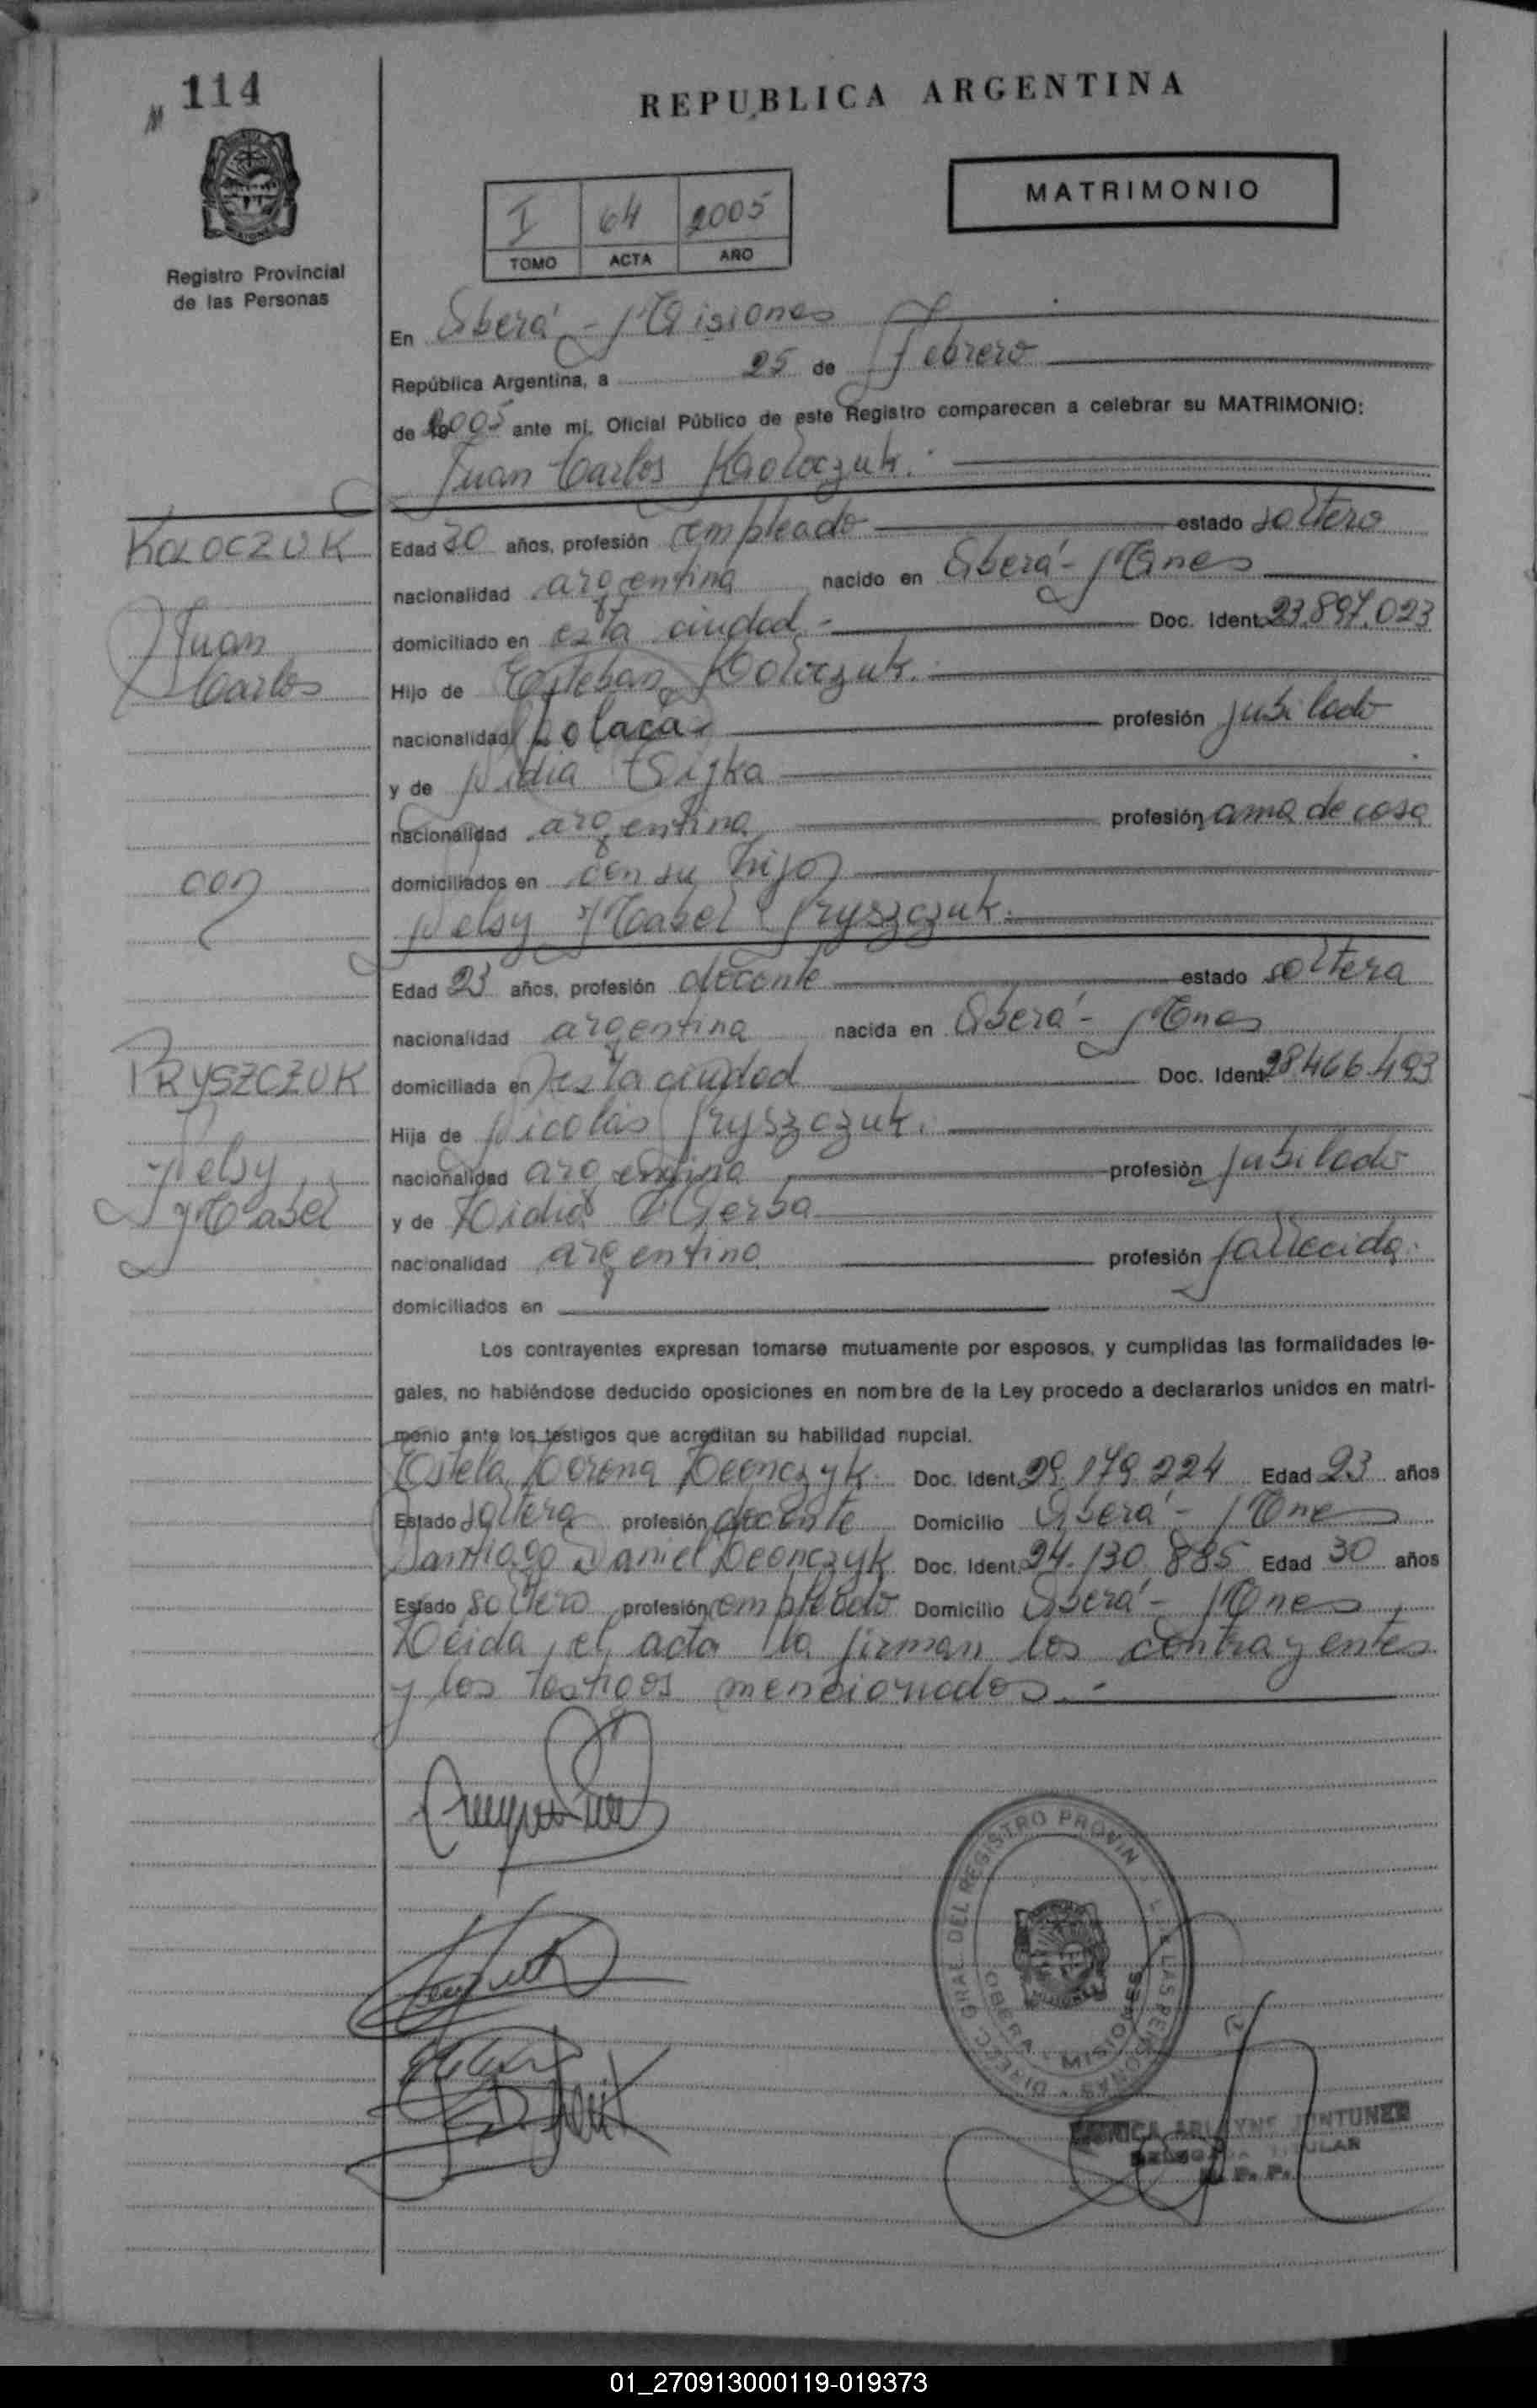 Nº 114
REPUBLICA ARGENTINA
MATRIMONIO
I 64 2005
TOMO ACTA AÑO
Registro Provincial
de las Personas
En Oberá - Misiones
República Argentina, a 25 de Febrero
de 2005 ante mí, Oficial Público de este Registro comparecen a celebrar su MATRIMONIO:
Juan Carlos Koloczuk.
KOLOCZUK
Juan
Carlos
Edad 30 años, profesión empleado estado soltero
nacionalidad argentina nacido en Oberá - Mnes
domiciliado en esta ciudad - Doc. Ident. 23.897.023
Hijo de Esteban Koloczuk.
nacionalidad polaca profesión jubilado
y de Nidia
nacionalidad argentina profesión ama de casa
domiciliados en con su hijo
con
Nelsy Mabel Pryszczuk.
Edad 23 años, profesión docente estado soltera
nacionalidad argentina nacida en Oberá - Mnes
PRYSZCZUK
Nelsy
Mabel
domiciliada en esta ciudad Doc. Ident. 28.466.493
Hija de Nicolás Pryszczuk.
nacionalidad argentina profesión jubilado
y de Lidia
nacionalidad argentina profesión fallecida.
domiciliados en
Los contrayentes expresan tomarse mutuamente por esposos, y cumplidas las formalidades le-
gales, no habiéndose deducido oposiciones en nombre de la Ley procedo a declararlos unidos en matri-
monio ante los testigos que acreditan su habilidad nupcial.
Estela Lorena Leonczyk Doc. Ident. 29.179.224 Edad 23 años
Estado soltera profesión docente Domicilio Oberá - Mnes
Santiago Daniel Leonczyk Doc. Ident. 24.130.885 Edad 30 años
Estado soltero profesión empleado Domicilio Oberá - Mnes
Leída el acta la firman los contrayentes
y los testigos mencionados. -
DIRECC GRAL DEL REGISTRO PROVIN LAS PERSONAS
OBERA - MISIONES
01_270913000119-019373